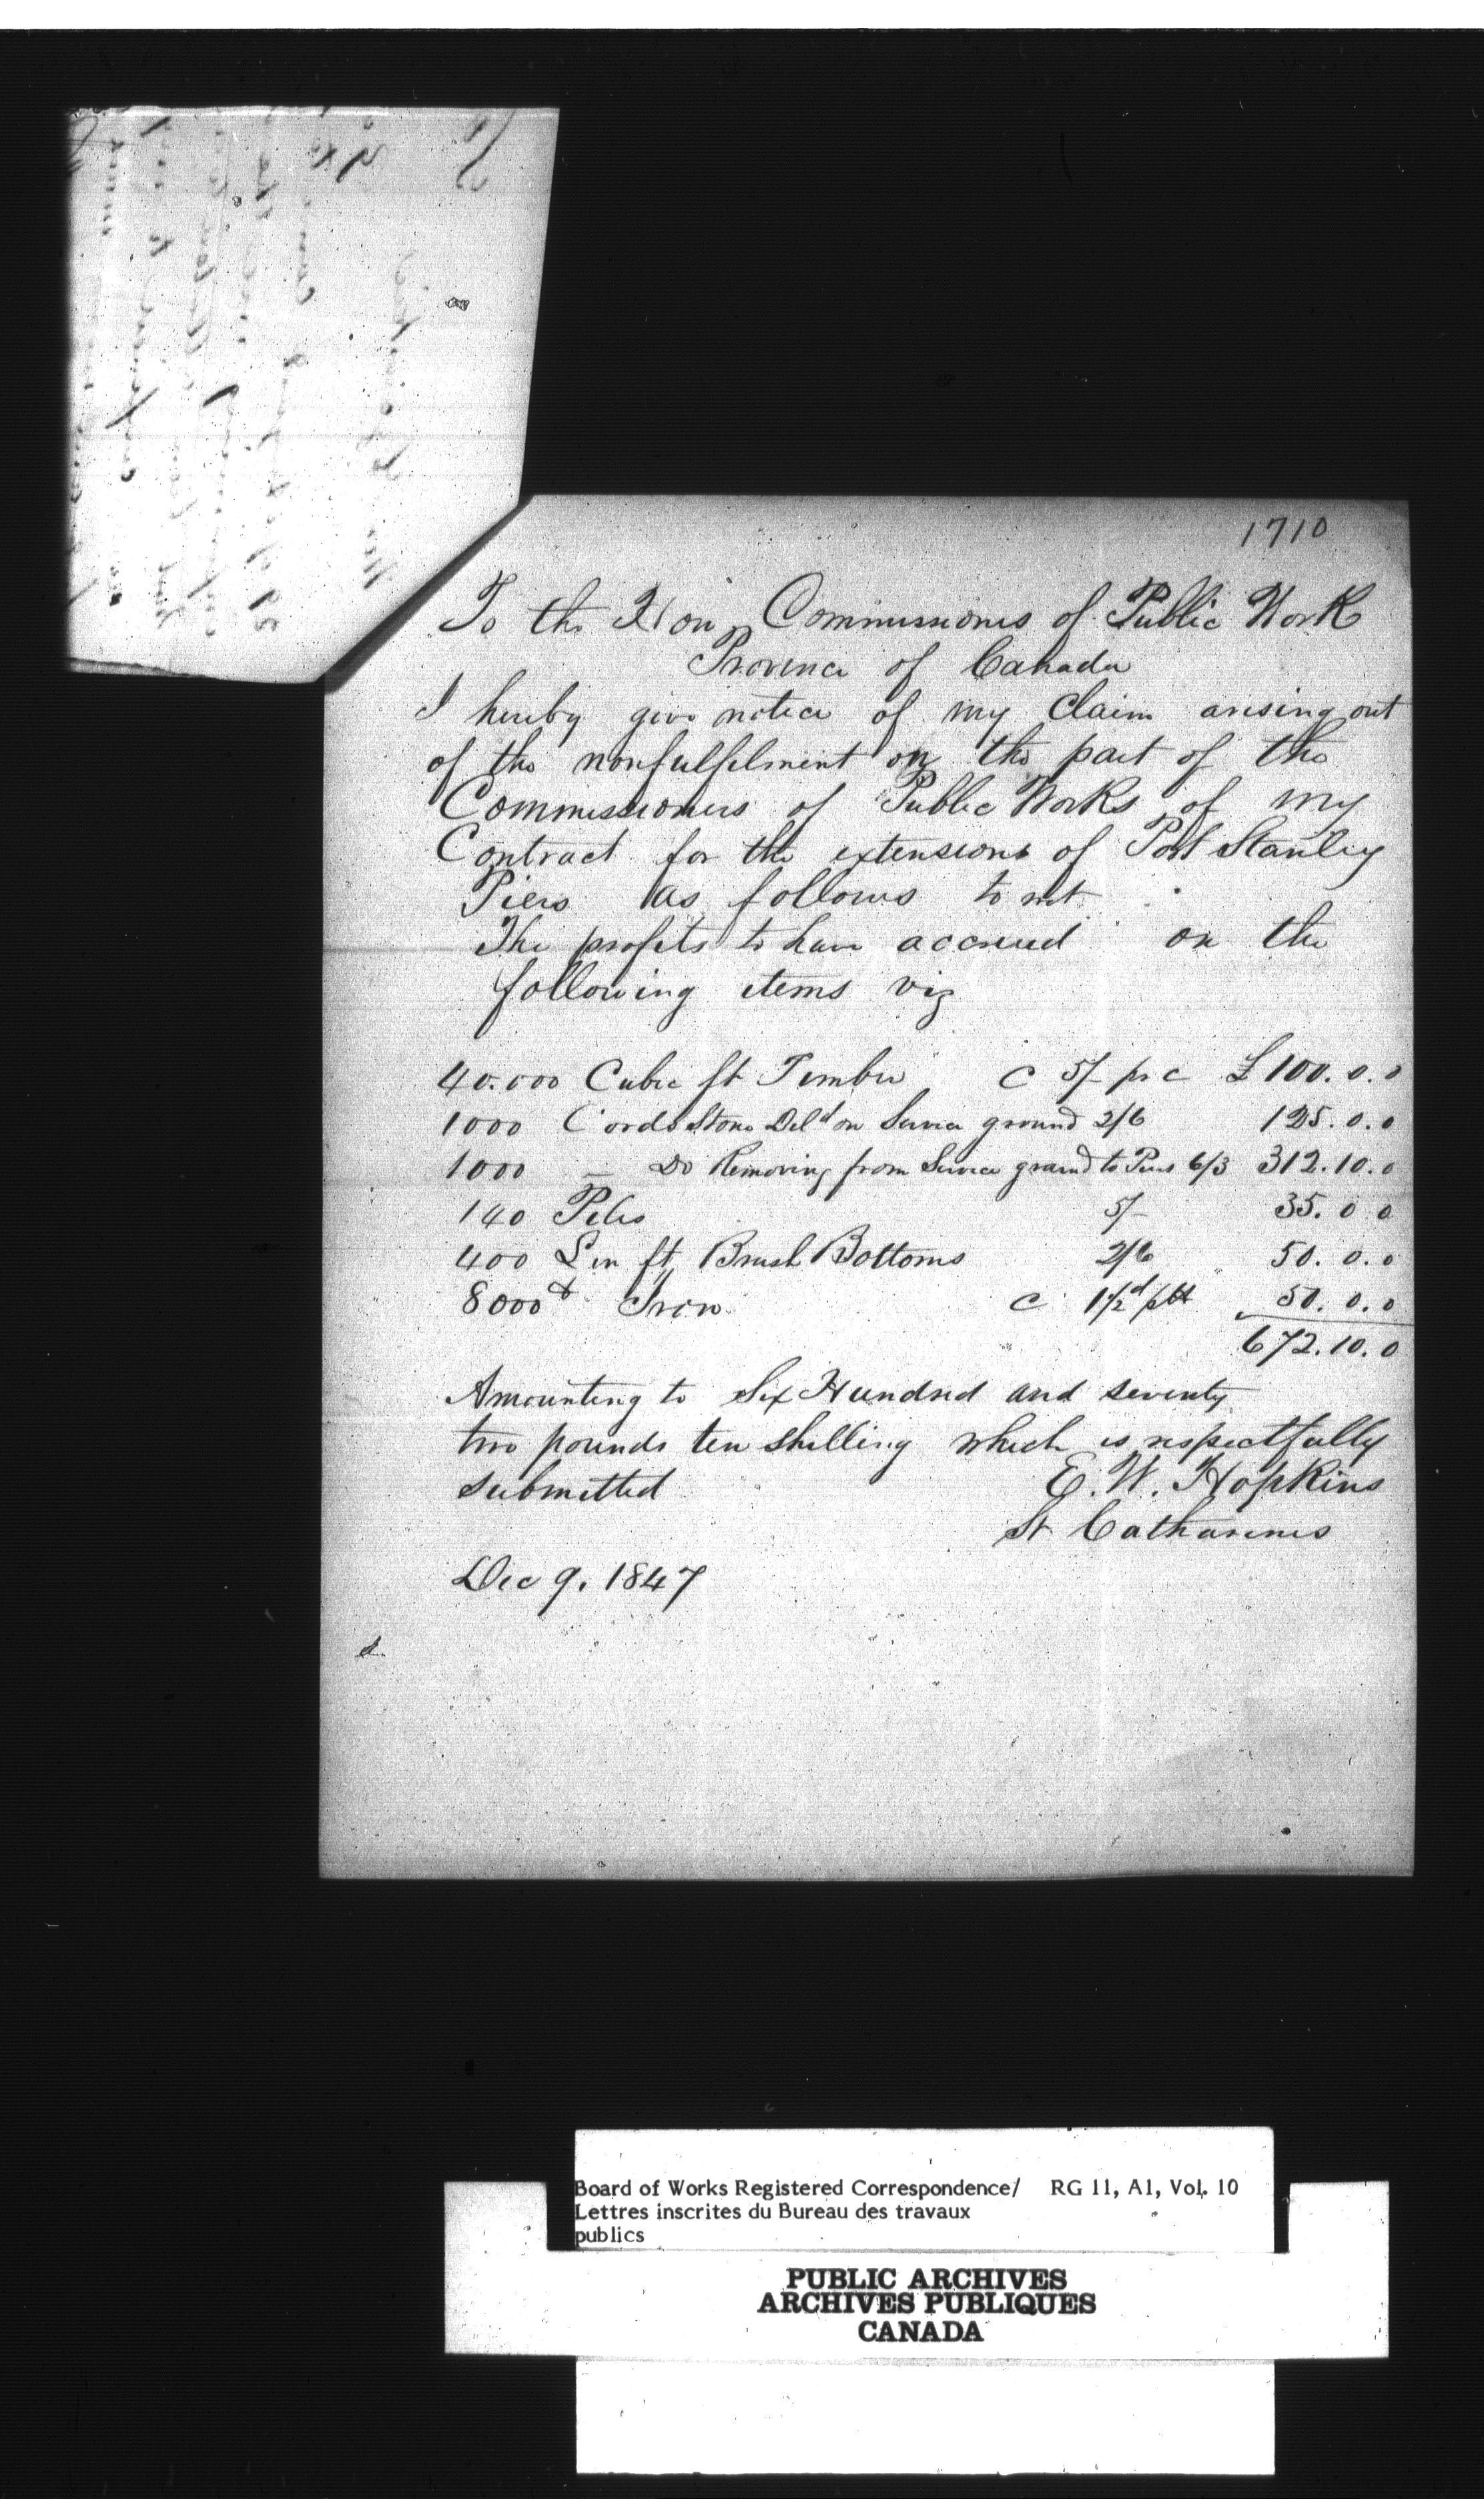 1710
To the Hon Commissiones of Public Work
Province of Canada
I hereby give notice of my Claim arising out
of the nonfulfilment on the part of the
Commissioners of Public Works of my
Contract for the extensions of Port Stanley
Piers as follows to wit
The profits to have accrued on the
following items viz
40.000 Cubic ft Timber @ 5/- pr c £100.0.0
1000 Cords Stone Deld on Service ground 2/6 125.0.0
1000 — Do Removing from Service ground to Piers 6/3 312.10.0
140 Piles 5/- 35.0 0
400 Lin ft Brush Bottoms 2/6 50.0.0
8000 Iron @ 1½d 50.0.0
672.10.0
Amounting to Six Hundred and seventy
two pounds ten shilling which is respectfully
submitted E. W. Hopkins
St Catharines
Dec 9. 1847
Board of Works Registered Correspondence/ RG 11, A1, Vol. 10
Lettres inscrites du Bureau des travaux
publics
PUBLIC ARCHIVES
ARCHIVES PUBLIQUES
CANADA